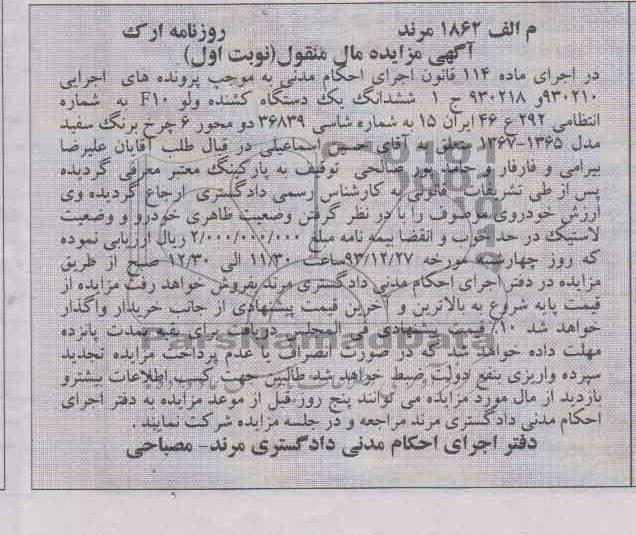 م الف ۱۸۶۲ مرند روزنامه ارک
آگهی مزایده مال منقول(نوبت اول)
در اجرای ماده ۱۱۴ قانون اجرای احکام مدنی به موجب پرونده های اجرایی
۹۳۰۲۱۰و ۹۳۰۲۱۸ ج ۱ ششدانگ یک دستگاه کشنده ولو F۱۰ به شماره
انتظامی ۲۹۲ ع ۴۶ ایران ۱۵ به شماره شاسی ۳۶۸۳۹ دو محور ۶ چرخ برنگ سفید
مدل ۱۳۶۵-۱۳۶۷ متعلق به آقای حسین اسماعیلی در قبال طلب آقایان علیرضا
بیرامی و قارقار و حامد پور صالحی توقیف به پارکینگ معتبر معرفی گردیده
پس از طی تشریفات قانونی به کارشناس رسمی دادگستری ارجاع گردیده وی
ارزش خودروی موصوف را با در نظر گرفتن وضعیت ظاهری خودرو و وضعیت
لاستیک در حد خوب و انقضا بیمه نامه مبلغ ۲/۰۰۰/۰۰۰/۰۰۰ ریال ارزیابی نموده
که روز چهارشنبه مورخه ۹۳/۱۲/۲۷ساعت ۱۱/۳۰ الی ۱۲/۳۰ صبح از طریق
مزایده در دفتر اجرای احکام مدنی دادگستری مرند بفروش خواهد رفت مزایده از
قیمت پایه شروع به بالاترین و آخرین قیمت پیشنهادی از جانب خریدار واگذار
خواهد شد ۱۰٪ قیمت پیشنهادی فی المجلس دریافت برای بقیه بمدت پانزده
مهلت داده خواهد شد که در صورت انصراف یا عدم پرداخت مزایده تجدید
سپرده واریزی بنفع دولت ضبط خواهد شد طالبین جهت کسب اطلاعات بیشترو
بازدید از مال مورد مزایده می توانند پنج روز قبل از موعد مزایده به دفتر اجرای
احکام مدنی دادگستری مرند مراجعه و در جلسه مزایده شرکت نمایند .
دفتر اجرای احکام مدنی دادگستری مرند- مصباحی
ParsNamadData